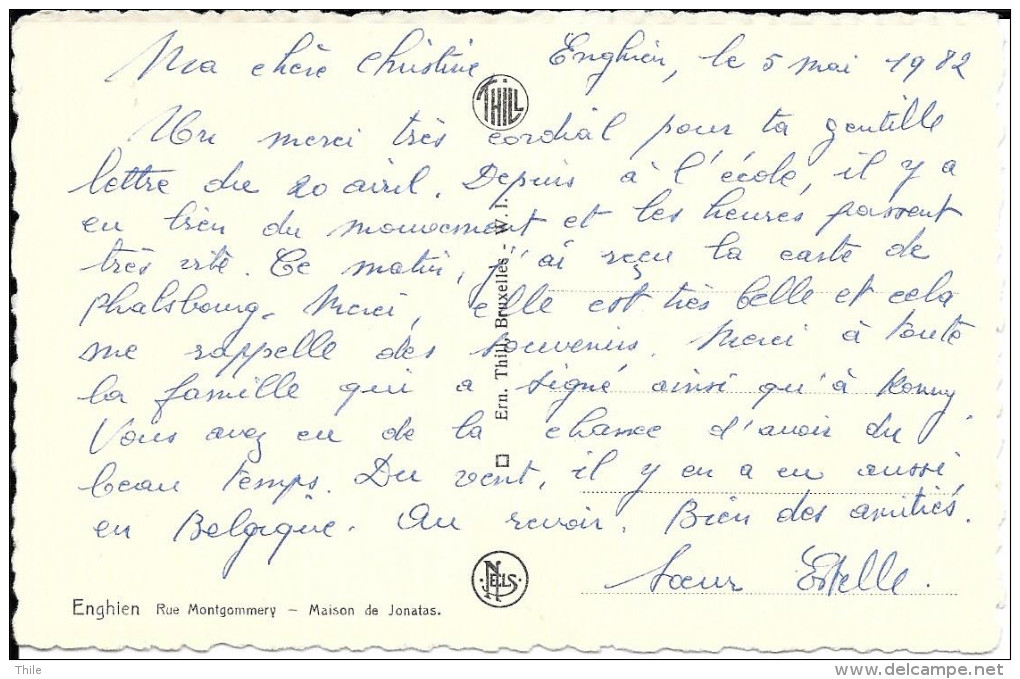 Ma chère Christine Enghien, le 5 mai 1982
Un merci très cordial pour ta gentille
lettre du 20 avril. Depuis à l'école, il y a
eu bien du mouvement et les heures passent
très vite. Ce matin, j'ai reçu la carte de
Phalsbourg. Merci, elle est très belle et cela
me rappelle des souvenirs. Merci à toute
la famille qui a signé ainsi qu'à Ronny.
Vous avez eu de la chance d'avoir du
beau temps. Du vent, il y en a eu aussi
en Belgique. Au revoir. Bien des amitiés.
Sœur Estelle.
THILL
Ern. Thill, Bruxelles - W. I.
NELS
Enghien Rue Montgommery – Maison de Jonatas.
Thile
www.delcampe.net